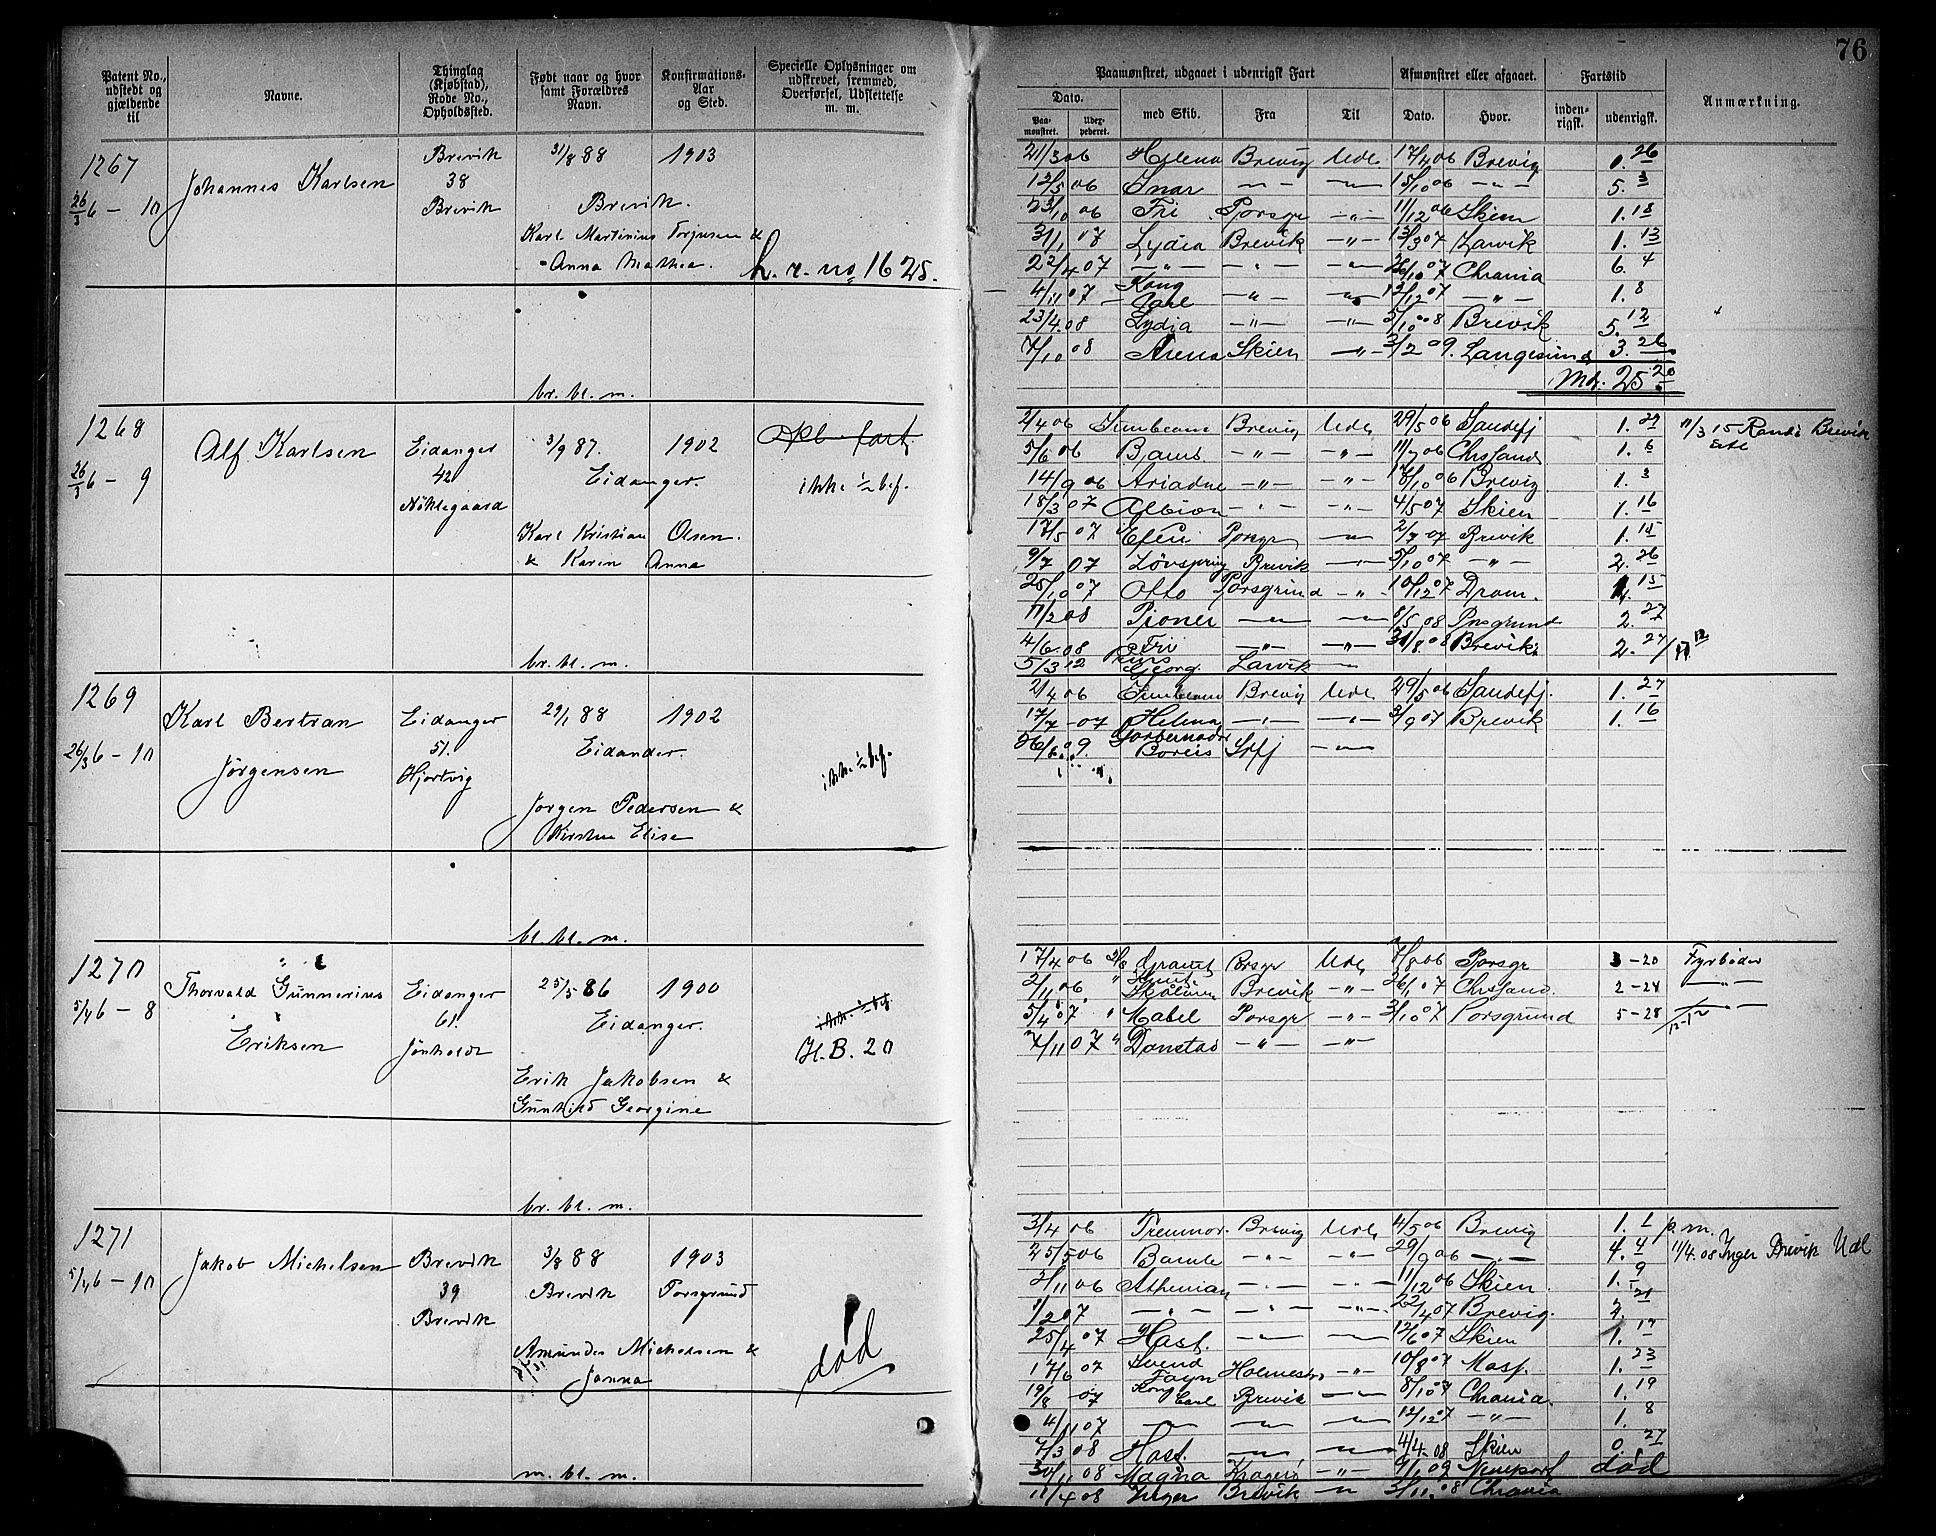 76
Patent No., udstedt og gjældende til
Navne.
Thinglag (Kjøbstad), Rode No., Opholdssted.
Født naar og hvor samt Forældres Navn.
Konfirmations- Aar og Sted.
Specielle Oplysninger om udskrevet, fremmed, Overførsel, Udslettelse m. m.
Paamønstret, udgaaet i udenrigsk Fart
Afmønstret eller afgaaet.
Fartstid
Anmærkning.
Dato.
Paa- mønstret.
med Skib.
Fra
Til
Dato.
Hvor.
inden- rigsk.
udenrigsk.
1267
26/3 6 - 10
Johannes Karlsen
Brevik
38
Brevik
31/8 88
1903
Brevik.
Karl Martinius Torjusen &
Anna Mathea.
h. r. no 1625.
br. bl. m.
21/3 06 Helena Brevig Udl. 17/4 06 Brevig 1. 26
12/5 06 Snar -"- -"- 15/10 06 -"- 5. 3
23/10 06 Fri Porsgr -"- 11/12 06 Skien 1. 18
31/1 07 Lydia Brevik -"- 13/3 07 Larvik 1. 13
22/4 07 -"- -"- -"- 26/10 07 Chrania 6. 4
4/11 07 Kong Carl -"- -"- 12/12 07 -"- 1. 8
23/4 08 Lydia -"- -"- 5/10 08 Brevik 5. 12
7/10 08 Arena Skien -"- 3/2 09. Langesund 3. 26
Md. 25. 20
1268
26/3 6 - 9
Alf Karlsen
Eidanger
42
Nøklegaard
3/9 87.
1902
Eidanger.
ikke ½ bef.
Karl Kristian Olsen.
& Karen Anna
br. bl. m.
2/4 06 Sunbeam Brevig Udl. 29/5 06 Sandefj 1. 27
11/3 15 Brevik
5/6 06 -"- -"- 11/7 06 Chrsand 1. 6
14/9 06 Ariadne -"- -"- 17/10 06 Brevig 1. 3
18/3 07 Albion -"- -"- 4/5 07 Skien 1. 16
17/5 07 Porsgr -"- 2/7 07 Brevik 1. 15
9/7 07 Løvspring Brevik -"- 5/10 07 -"- 2. 26
25/10 07 Otto Porsgrund -"- 10/12 07 Dram. 1. 15
11/2 08 Pioner -"- -"- 8/5 08 Porsgrund 2. 27
4/6 08 Fri -"- -"- 31/8 08 Brevik. 2. 27
5/3 12 Georg. Larvik -
1269
26/3 6 - 10
Karl Bertran
Jørgensen
Eidanger
51.
Hjortvig
29/1 88
1902
Eidanger.
ikke ½ bef.
Jørgen Pedersen &
Kirstine Elise
bl. bl. m.
2/4 06 Sunbeam Brevig Udl. 29/5 06 Sandefj. 1. 27
17/7 - 07 Helena -"- -"- 3/9 07 Brevik 1. 16
Boreis -"-
1270
5/4 6 - 8
Thorvald Gunnerius
Eriksen
Eidanger
61.
Jønholdt
25/5 86
1900
Eidanger.
H. B. 20
Erik Jakobsen &
Gunhild Georgine
br. bl. m.
17/4 06 Porsgr Udl. 7/8 06 Porsgr 3 - 20 Fyrbøder
2/11 06 Brevik -"- 26/1 07 Chrsand. 2 - 24 -"-
5/4 07 " Mabel Porsgr -"- 3/10 07 Porsgrund 5 - 28
7/11 07 " Danstad -"- -"-
1271
5/4 6 - 10
Jakob Michelsen
Brevik
39
Brevik
3/8 88
1903
Brevik
Porsgrund
Amundes Michelsen &
Janna
død
m. bl. m.
3/4 06 Tremmor. Brevig Udl. 4/5 06 Brevig 1. 1 p. m.
25/5 06 Bamle -"- -"- 29/9 06 -"- 4. 4 11/4.08 Inger Brevik Udl
2/11 06 Athenian -"- -"- 11/12 06 Skien. 1. 9
1/2 07 -"- -"- -"- 22/4 07 Brevig. 2. 21
25/4 07 Hast. -"- -"- 12/6 07 Skien 1. 17
17/6 07 Svend Foyn Holmestr -"- 10/8 07 Moss. 1. 23
19/8 - 07 Kong Carl Brevik -"- 8/10 07 Chrania. 1. 19
4/11 07 -"- -"- -"- 12/12 07 -"- 1. 8
7/3 08 Hast. -"- -"- 4/4 08 Skien 0. 27
30/11 08 Magna Kragerø -"- 9/1 09 Newport død
11/4 08 Inger Brevik -"- 3/11 08 Chrania